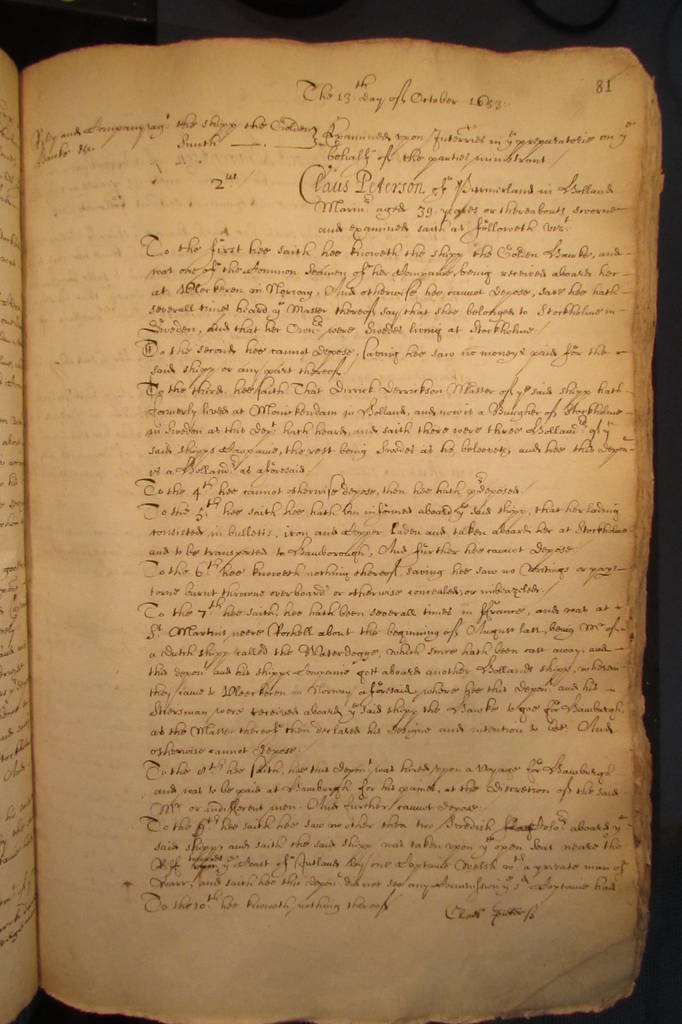 81
The 13th day of October 1653.
and Company agt the shipp the Golden
Examined upon Interries in ye preparatorie on ye
behalfe of the parties ministrant
2us
Claus Peterson of Purmerland in Holland
Marinr aged 39 yeares or thereabouts sworne
and examined saith as followeth vizt
To the first hee saith hee knoweth the shipp the Golden Hawke, and
was one of the Common Seamen of her Companie, being received aboard her
at Bleckeren in Norway, And otherwise hee cannot depose, save hee hath
severall times heard ye Master thereof say that shee belonged to Stockholme in
Sweden, and that her Ownrs were Swedes living at Stockholme
To the second hee cannot depose, saving hee saw no moneys paid for the
said shipp or any part thereof
To the third hee saith That Dirrick Derrickson Master of ye said shipp hath
formerly lived at Monickendam in Holland, and now is a Burgher of Stockholme
in Sweden as this dept hath heard, and saith there were three Hollandrs of ye
said shipps Companie, the rest being Swedes as he beleeveth, and hee this depont
is a Hollandr as aforesaid
To the 4th hee cannot otherwise depose, then hee hath predeposed
To the 5th hee saith hee hath bin informed aboard ye said shipp, that her lading
consisted in bulletts, iron and Copper laden and taken aboard her at Stockholme
and to be transported to Hamborough, And further hee cannot depose
To the 6th hee knoweth nothing thereof, saving hee saw no writings or papers
torne burnt throwne overboard or otherwise concealed, or imbeazeled.
To the 7th hee saith hee hath been severall times in France, and was at
St Martins neere Rochell about the beginning of August last, being Mr of
a dutch shipp called the Waterdogge, which since hath been cast away, and
this depont and his shipps Companie gott aboard another Hollands shipp, wherein
they came to Bleckeren in Norway aforesaid, where hee this depont and his
Stiersman were received aboard ye said shipp the Hawke to goe for Hamburgh,
as the Master thereof then declared his designe and intention to bee And
otherwise cannot depose.
To the 8th hee saith, hee this depont was hired upon a voyage for Hamburgh
and was to be paid at Hamburgh for his paines, at the discretion of the said
Mr or indifferent men. And further cannot depose
To the 9th hee saith hee saw no other then two Swedish aboard ye
said shipp, and saith the said shipp was taken upon ye open Seas neare the
Riff towards ye Coast of Jutland by one Captaine Welsh wth a private man of
Warr, and saith hee this depont did not see any Commission ye sd Captaine had
To the 10th hee knoweth nothing thereof